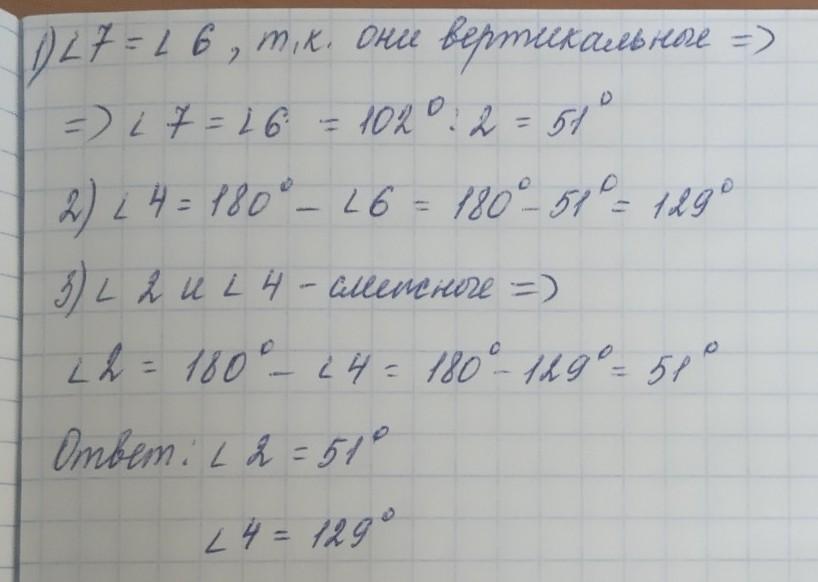 1) ∠7 = ∠6, т.к. они вертикальные =>
=> ∠7 = ∠6 = 102° : 2 = 51°
2) ∠4 = 180° - ∠6 = 180° - 51° = 129°
3) ∠2 и ∠4 - смежные =>
∠2 = 180° - ∠4 = 180° - 129° = 51°
Ответ: ∠2 = 51°
∠4 = 129°